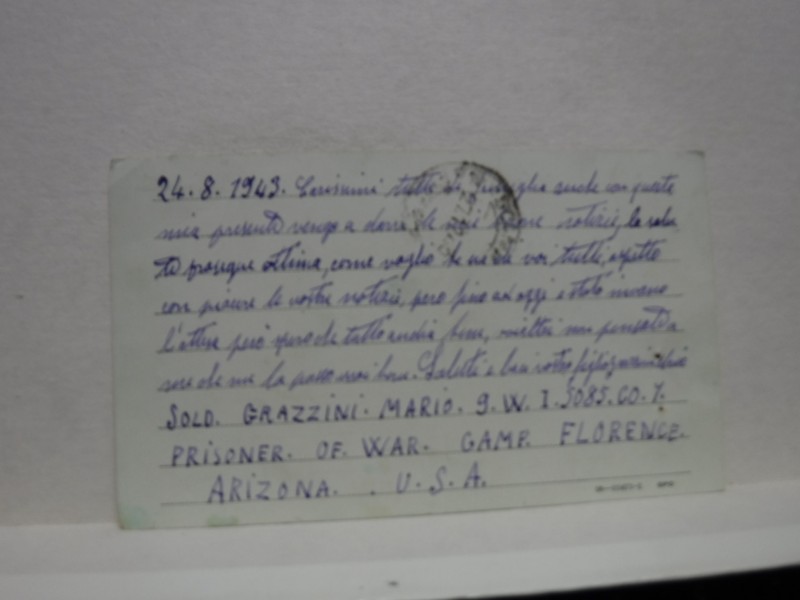 24.8.1943. Carissimi tutti di famiglia anche con questa
mia presente vengo a darvi le mie buone notizie, la salu
te prosegue ottima, come voglio di voi tutti, aspetto
con le vostre notizie, però fino ad oggi è stato invano
l'attesa però spero che tutto andrà bene,
che me la passo assai bene. Saluti e baci vostro figlio
SOLD. GRAZZINI. MARIO. 9. W. I. 5085. CO. 7.
PRISONER. OF. WAR. CAMP. FLORENCE.
ARIZONA. . U. S. A.